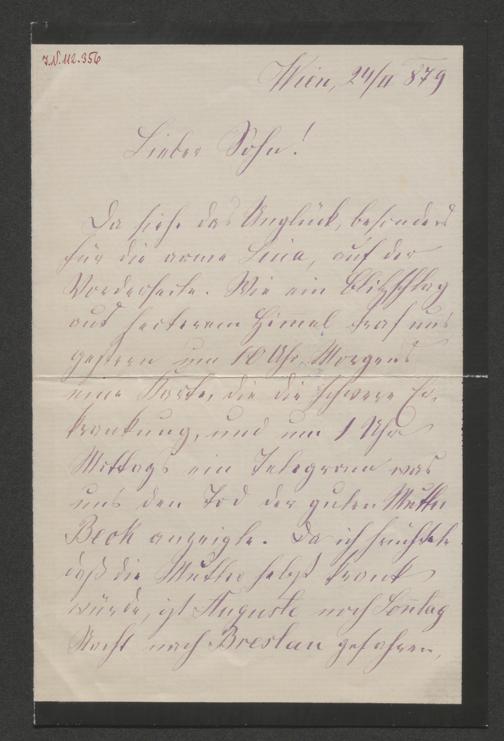 J.N. 112.356
Wien, 24/11 879
Lieber Sohn!
Da siehe das Unglück, besonders
für die arme Lina, auf der
Vorderseite. Wie ein Blitzschlag
aus heiterem Himel traf uns
gestern um 10 Uhr Morgens
eine Karte, die die schwere Er-
krankung, und um 1 Uhr
Mittags ein Telegramm was
uns den Tod der guten Mutter
Beck anzeigte. Da ich fürchtete
daß die Mutter selbst krank
würde, ist Auguste noch Sontag
Nacht nach Breslau gefahren,